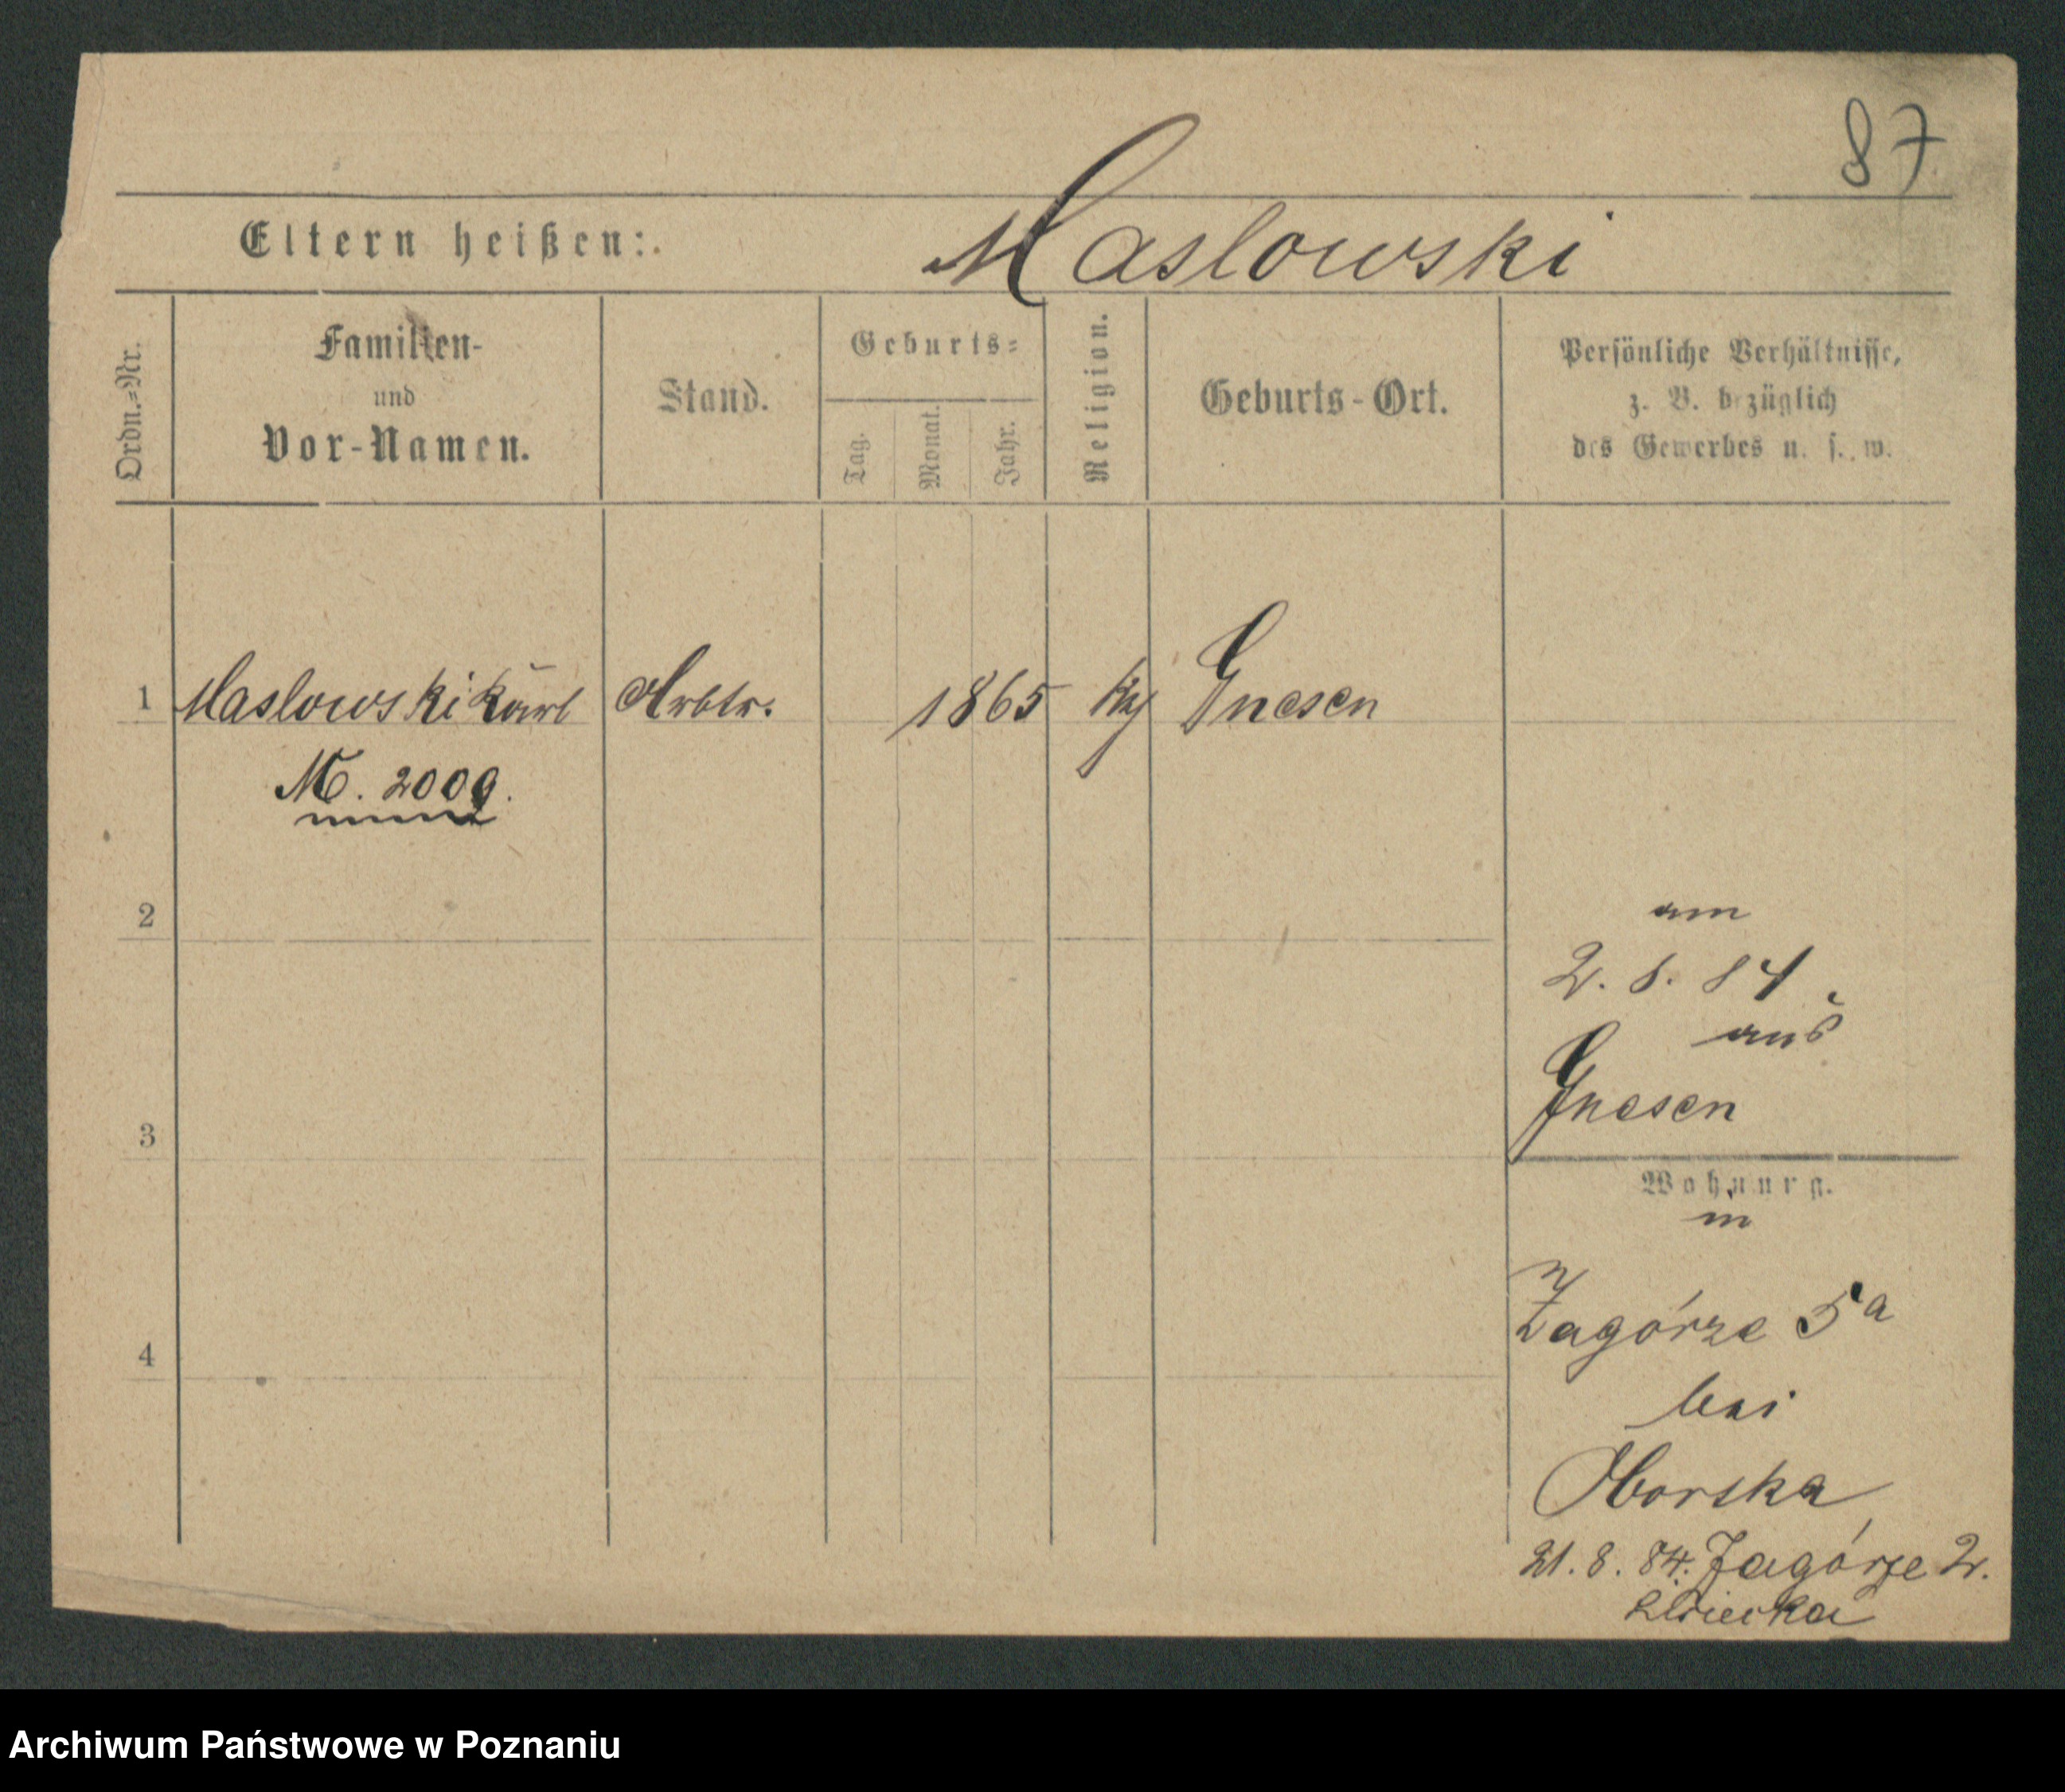 87
Eltern heißen: Maslowski
Ordn.=Nr.
Familien-
und
Vor-Namen.
Stand.
Geburts=
Tag.
Monat.
Jahr.
Religion.
Geburts-Ort.
Persönliche Verhältnisse,
z. B. bezüglich
des Gewerbes u. s. w.
1 Maslowski Karl Arbtr. 1865 Gnesen
M. 2009.
2
am
2. 8. 84.
aus
Gnesen
3
Wohnung.
in
Zagórze 5a
4
bei
Oborska
21. 8. 84. Zagórze 2.
Archiwum Państwowe w Poznaniu